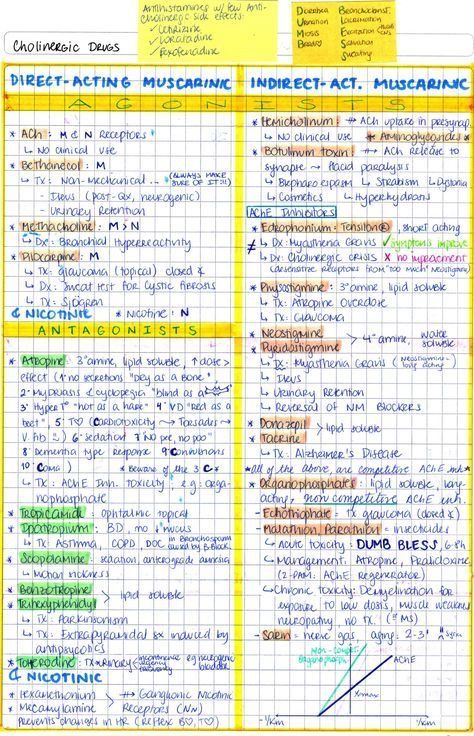 Antihistamines w/ few Anti-
cholinergic side effects:
✓ Cetirizine
✓ Loratadine
✓ Fexofenadine
Diarrhea Bronchoconst.
Urination Lacrimation
Miosis Excitation
Brady Salivation
Sweating
Cholinergic Drugs
DIRECT-ACTING MUSCARINIC
INDIRECT-ACT. MUSCARINIC
AGONISTS
* ACh: M & N Receptors
↳ No clinical use
* Bethanecol: M
↳ Tx: Non-Mechanical... (ALWAYS MAKE SURE OF IT!!!)
- Ileus (post-Qx, neurogenic)
- Urinary Retention
* Methacholine: M > N
↳ Dx: Bronchial Hyperreactivity
* Pilocarpine: M
↳ Tx: glaucoma (topical) closed
↳ Dx: Sweat test for Cystic fibrosis
↳ Tx: Sjögren
& NICOTINIC * Nicotine: N
ANTAGONISTS
* Atropine: 3° amine, lipid soluble, ↑ dose >
effect (1° no secretions "Dry as a bone",
2° Mydriasis & cyclopegia "blind as a
3° HyperT° "hot as a hare" 4° VD "Red as a
beet", 5° T♡ (Cardiotoxicity → Torsades →
V. Fib 6° sedation 7° No pee, no poo"
8° Dementia type response 9° Convulsions
10° Coma) * Beware of the 3 C*
↳ Tx: AChE Inh. toxicity: e.g: Orga-
nophosphate
* Tropicamide: Ophtalmic topical
* Ipatropium: BD, no ↓ mucus
↳ Tx: Asthma, COPD, DOC in Bronchospasm caused by B.Block.
* Scopolamine: sedation, anterograde amnesia
↳ Motion sickness
* Benztropine
* Trihexyphenidyl > lipid soluble
↳ Tx: Parkinsonism
↳ Tx: Extrapyramidal Sx induced by
antipsycotics
* Tolterodine: Tx → Urinary incontinence eg neurogenic bladder
& NICOTINIC
* Hexamethonium
* Mecamylamine
Ganglionic Nicotinic
Receptors (NN)
prevents changes in HR (Reflex B♡, T♡)
* Hemicholinum: ACh uptake in presynap.
↳ No clinical use * Aminoglycosides *
* Botulinum toxin: ACh release to
synapse → Flacid paralysis
↳ Blepharoespasm ↳ Strabism ↳ Dystonia
↳ Cosmetics ↳ Hyperhydrons
AChE Inhibitors
* Edrophonium: Tensilon®, short acting
≠ ↳ Dx: Myasthenia Gravis ✓ symptoms improve
↳ Dx: Cholinergic Crisis × no improvement
(desensitive receptors from "too much" Neostigmine)
* Physostigmine: 3° amine, lipid soluble
↳ Tx: Atropine Overdose
↳ Tx: Glaucoma
* Neostigmine
* Pyridostigmine > 4° amine, water soluble
↳ Tx: Myasthenia Gravis
↳ Ileus
↳ Urinary Retention
↳ Reversal of NM Blockers
* Donazepil
* Tacrine > lipid soluble
↳ Tx: Alzheimer's Disease
*All of the above, are competitive AChE inh.*
* Organophosphates: lipid soluble, long-
acting, non competitive AChE inh.
* Echothiphate = Tx glaucoma (closed)
* Malathion, Parathion = insecticides
↳ Acute toxicity: DUMB BLESS,
↳ Management: Atropine, Pralidoxime
(2-PAM: AChE regenerator)
↳ Chronic toxicity: Demyelination for
exposure to low dosis, muscle weakness
neuropathy, no tx. (≠ MS)
* Sarin = nerve gas, aging: 2-3'
Non-compet.
organophosph.
AChE
Vmax
-1/km
-1/km